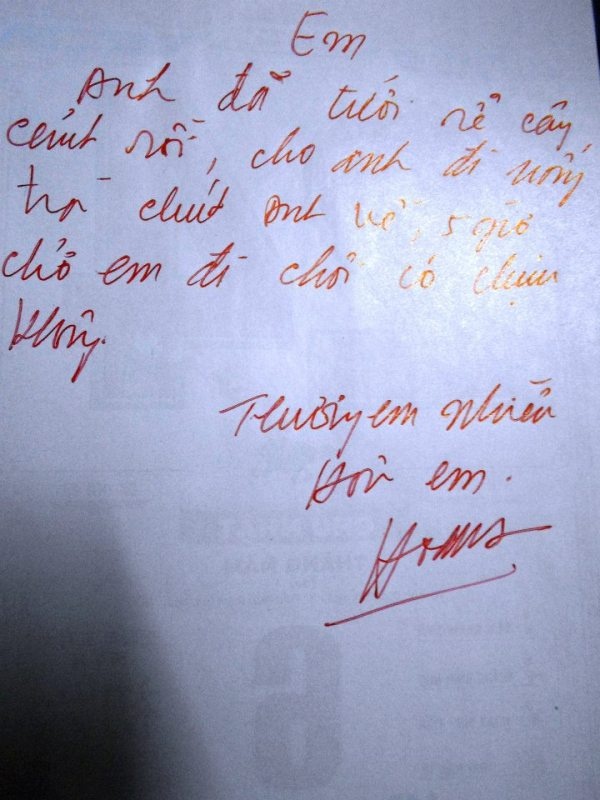 Em
Anh đã tưới rể cây
cảnh rồi, cho anh đi uống
trà chút anh về, 5 giờ
chở em đi chơi có chịu
không.
Thương em nhiều
Hôn em.
THÁNG NĂM
6